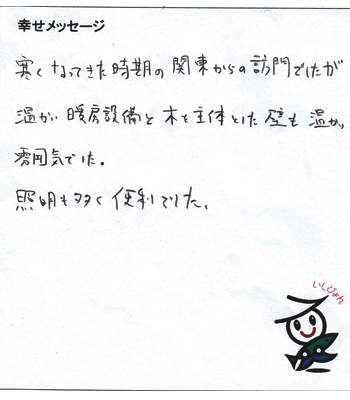 幸せメッセージ
寒くなってきた時期の関東からの訪問でしたが
温かい暖房設備と木を主体とした壁も温かい
雰囲気でした。
照明も多く便利でした。
いしぴょん